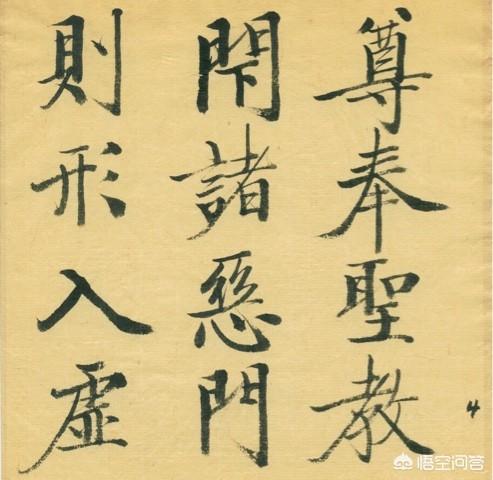 尊奉聖教
閇諸惡門
則形入虛
4
悟空问答